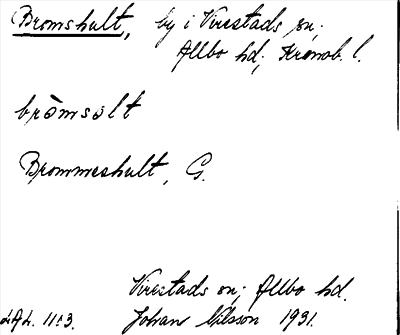 Bromshult, by i Virestads sn;
Allbo hd; Kronob. l.
bròmsəlt
Brommeshult, G.
Virestads sn; Allbo hd.
LAL. 1183. Johan Nilsson 1931.